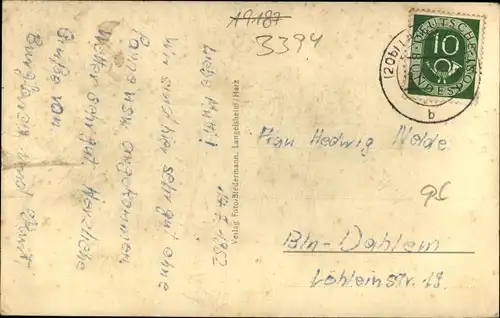 19187
3394
17.7.1952
Liebe Mutti
Wir sind hier sehr gut ohne
Panne usw. angekommen
Wetter sehr gut. Herzliche
Grüße von
und
Verlag Foto-Biedermann, Langelsheim/Harz
(20b)
b
DEUTSCHE
BUNDESPOST
10
Frau Hedwig Nolde
Bln-Dahlem
Löhleinstr. 19